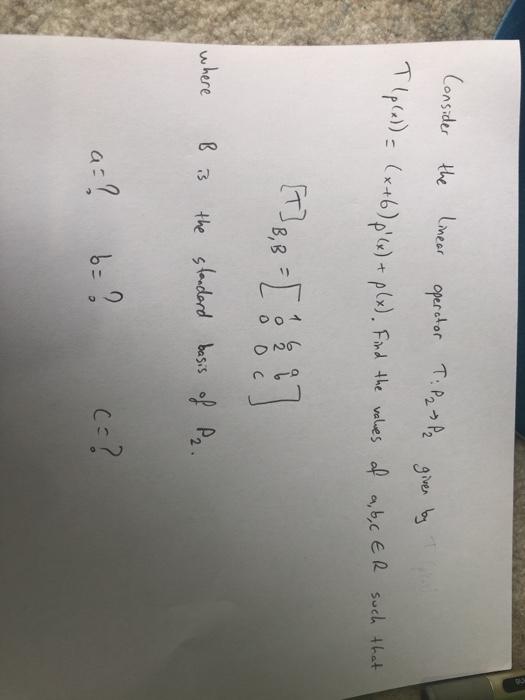 Consider the linear operator T: P₂ → P₂ given by
T(p(x)) = (x+6)p'(x) + p(x). Find the values of a,b,c ∈ R such that
[T]B,B = [1 6 a
0 2 b
0 0 c]
where B is the standard basis of P₂.
a=? b=? c=?